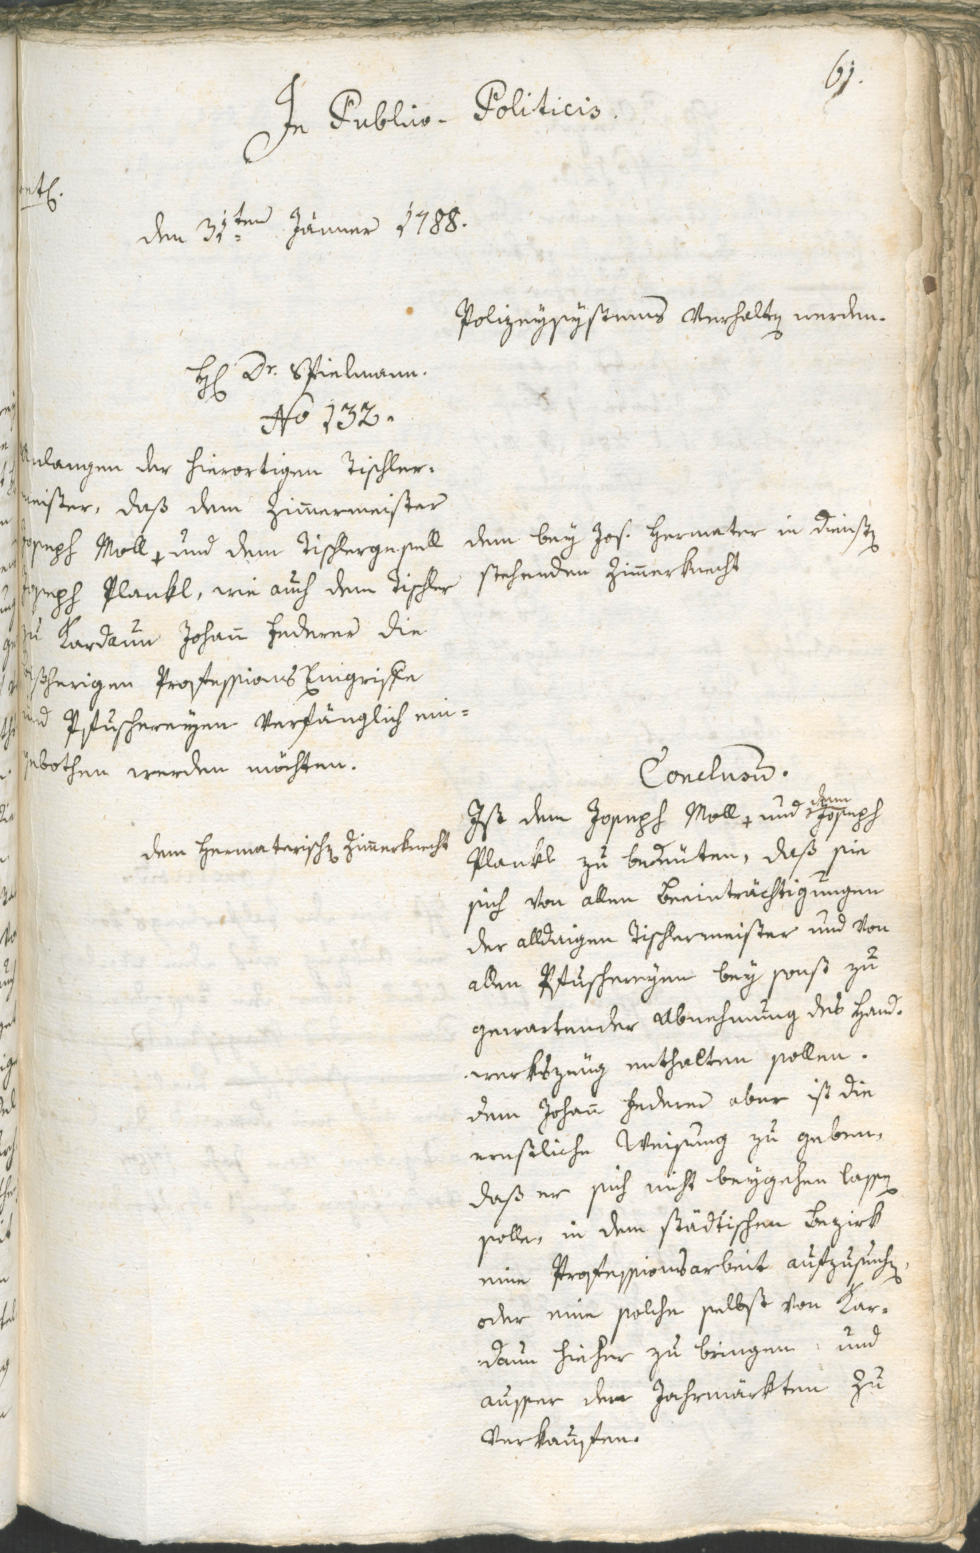 61.
In Publico-Politicis.
den 31ten Jänner 1788.
Polizeysystems verhalten werden.
H. Dr. Spielmann.
No 132.
Anlangen der hierortigen Tischler-
meister, daß dem Zimmermeister
Joseph Moll + und dem Tischlergesell
Joseph Plankl, wie auch dem Tischler
zu Kardaun Johann Hederer die
bißherigen Professions Eingriffe
und Pfuschereyen verfänglich ein=
gebothen werden möchten.
dem bey Jos. Hermater in dienste
stehenden Zimmerknecht
dem Hermaterischen Zimmerknecht
Conclusum.
Ist dem Joseph Moll + und dem Joseph
Plankl zu bedeuten, daß sie
sich von allen Beeinträchtigungen
der alldaigen Tischlermeister und von
allen Pfuschereyen bey sonst zu
gewartender Abnehmung des Hand-
werkszeug enthalten sollen.
dem Johann Hederer aber ist die
ernstliche Weisung zu geben,
daß er sich nicht beygehen lassen
solle, in dem städtischen Bezirk
eine Professionsarbeit aufzusuchen,
oder eine solche selbst von Kar-
daun hieher zu bringen, und
ausser den Jahrmärkten zu
verkauffen.